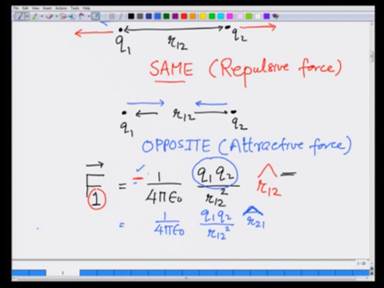 q₁ r₁₂ q₂
SAME (Repulsive force)
q₁ r₁₂ q₂
OPPOSITE (Attractive force)
F⃗₁ = - 1/4πε₀ q₁q₂/r₁₂² r̂₁₂
= 1/4πε₀ q₁q₂/r₁₂² r̂₂₁